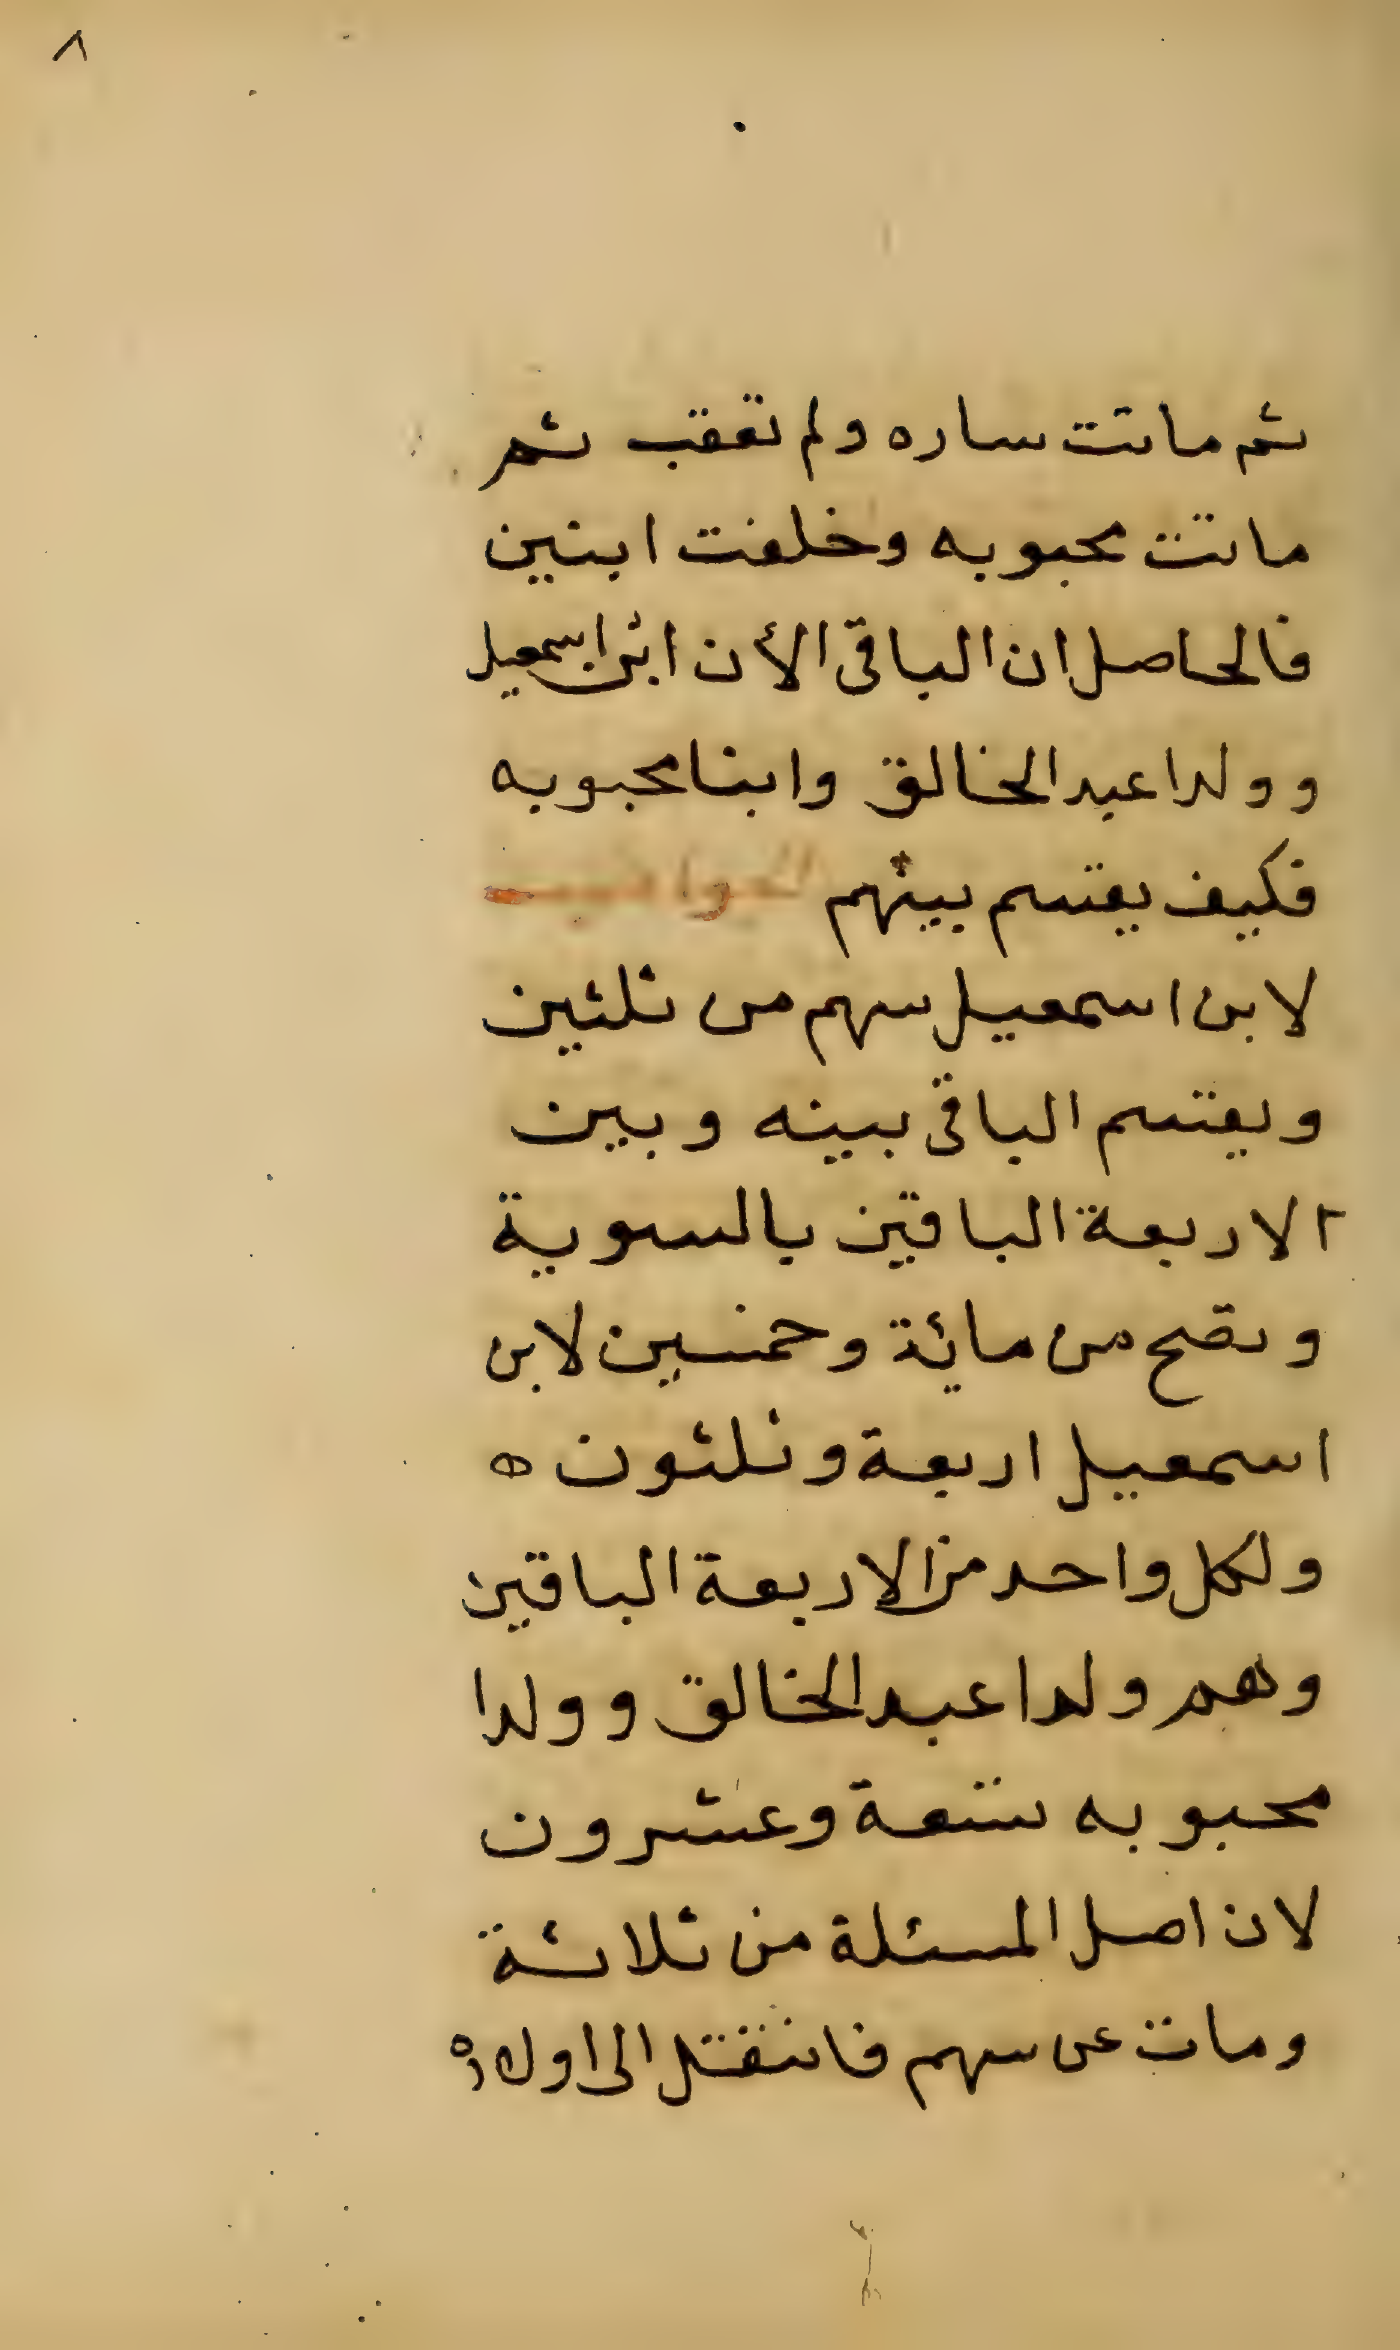 ٨
ثم ماتت ساره ولم تعقب ثم
ماتت محبوبه وخلفت ابنين
فالحاصل ان الباقى الأن ابن اسمعيل
وولدا عبد الخالق وابنا محبوبه
فكيف يقتسم بينهم الجواب
لابن اسمعيل سهم من ثلثين
ويقتسم الباقى بينه وبين
الاربعة الباقين بالسوية
وتصح من مائة وخمسين لابن
اسمعيل اربعة وثلثون ه
ولكل واحد من الاربعة الباقين
وهم ولدا عبد الخالق وولدا
محبوبه تسعة وعشرون
لان اصل المسئلة من ثلاثة
ومات عن سهم فانتقل الى اولاده